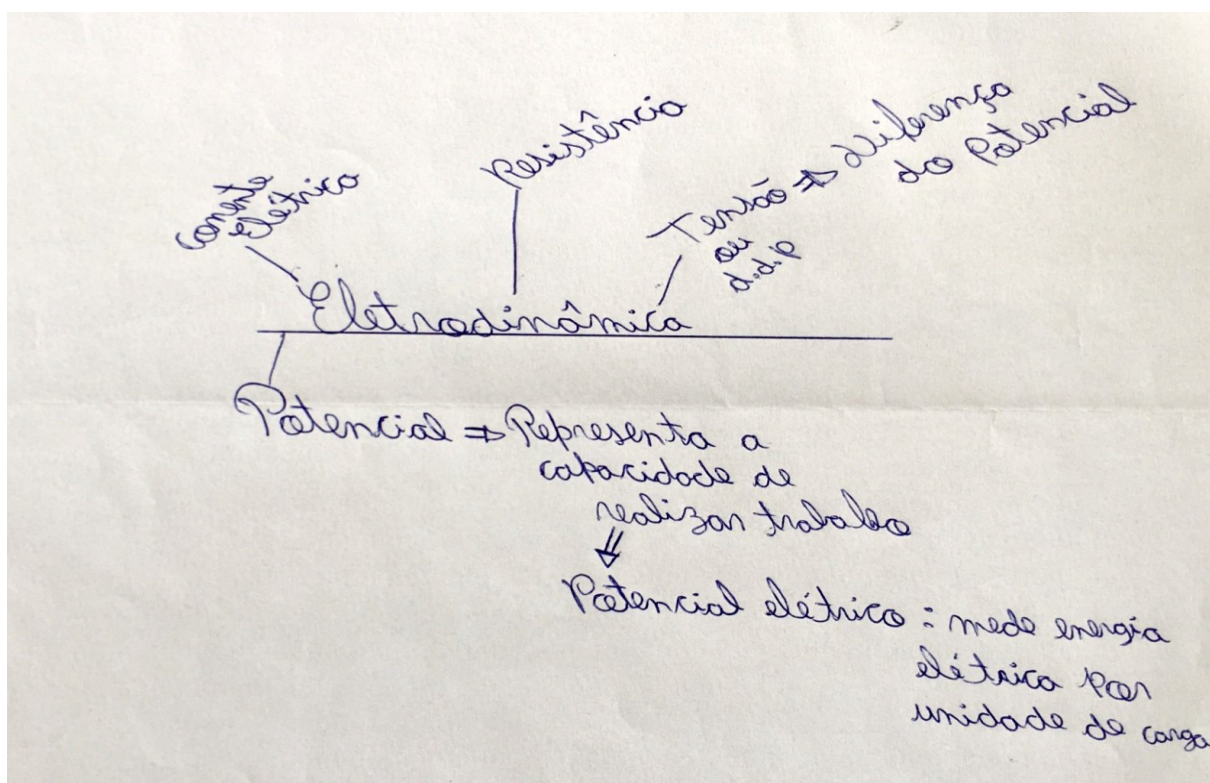 Corrente
Elétrica
Resistência
Tensão => Diferença
do Potencial
ou
d.d.p
Eletrodinâmica
Potencial => Representa a
capacidade de
realizar trabalho
Potencial elétrico : mede energia
elétrica por
unidade de carga